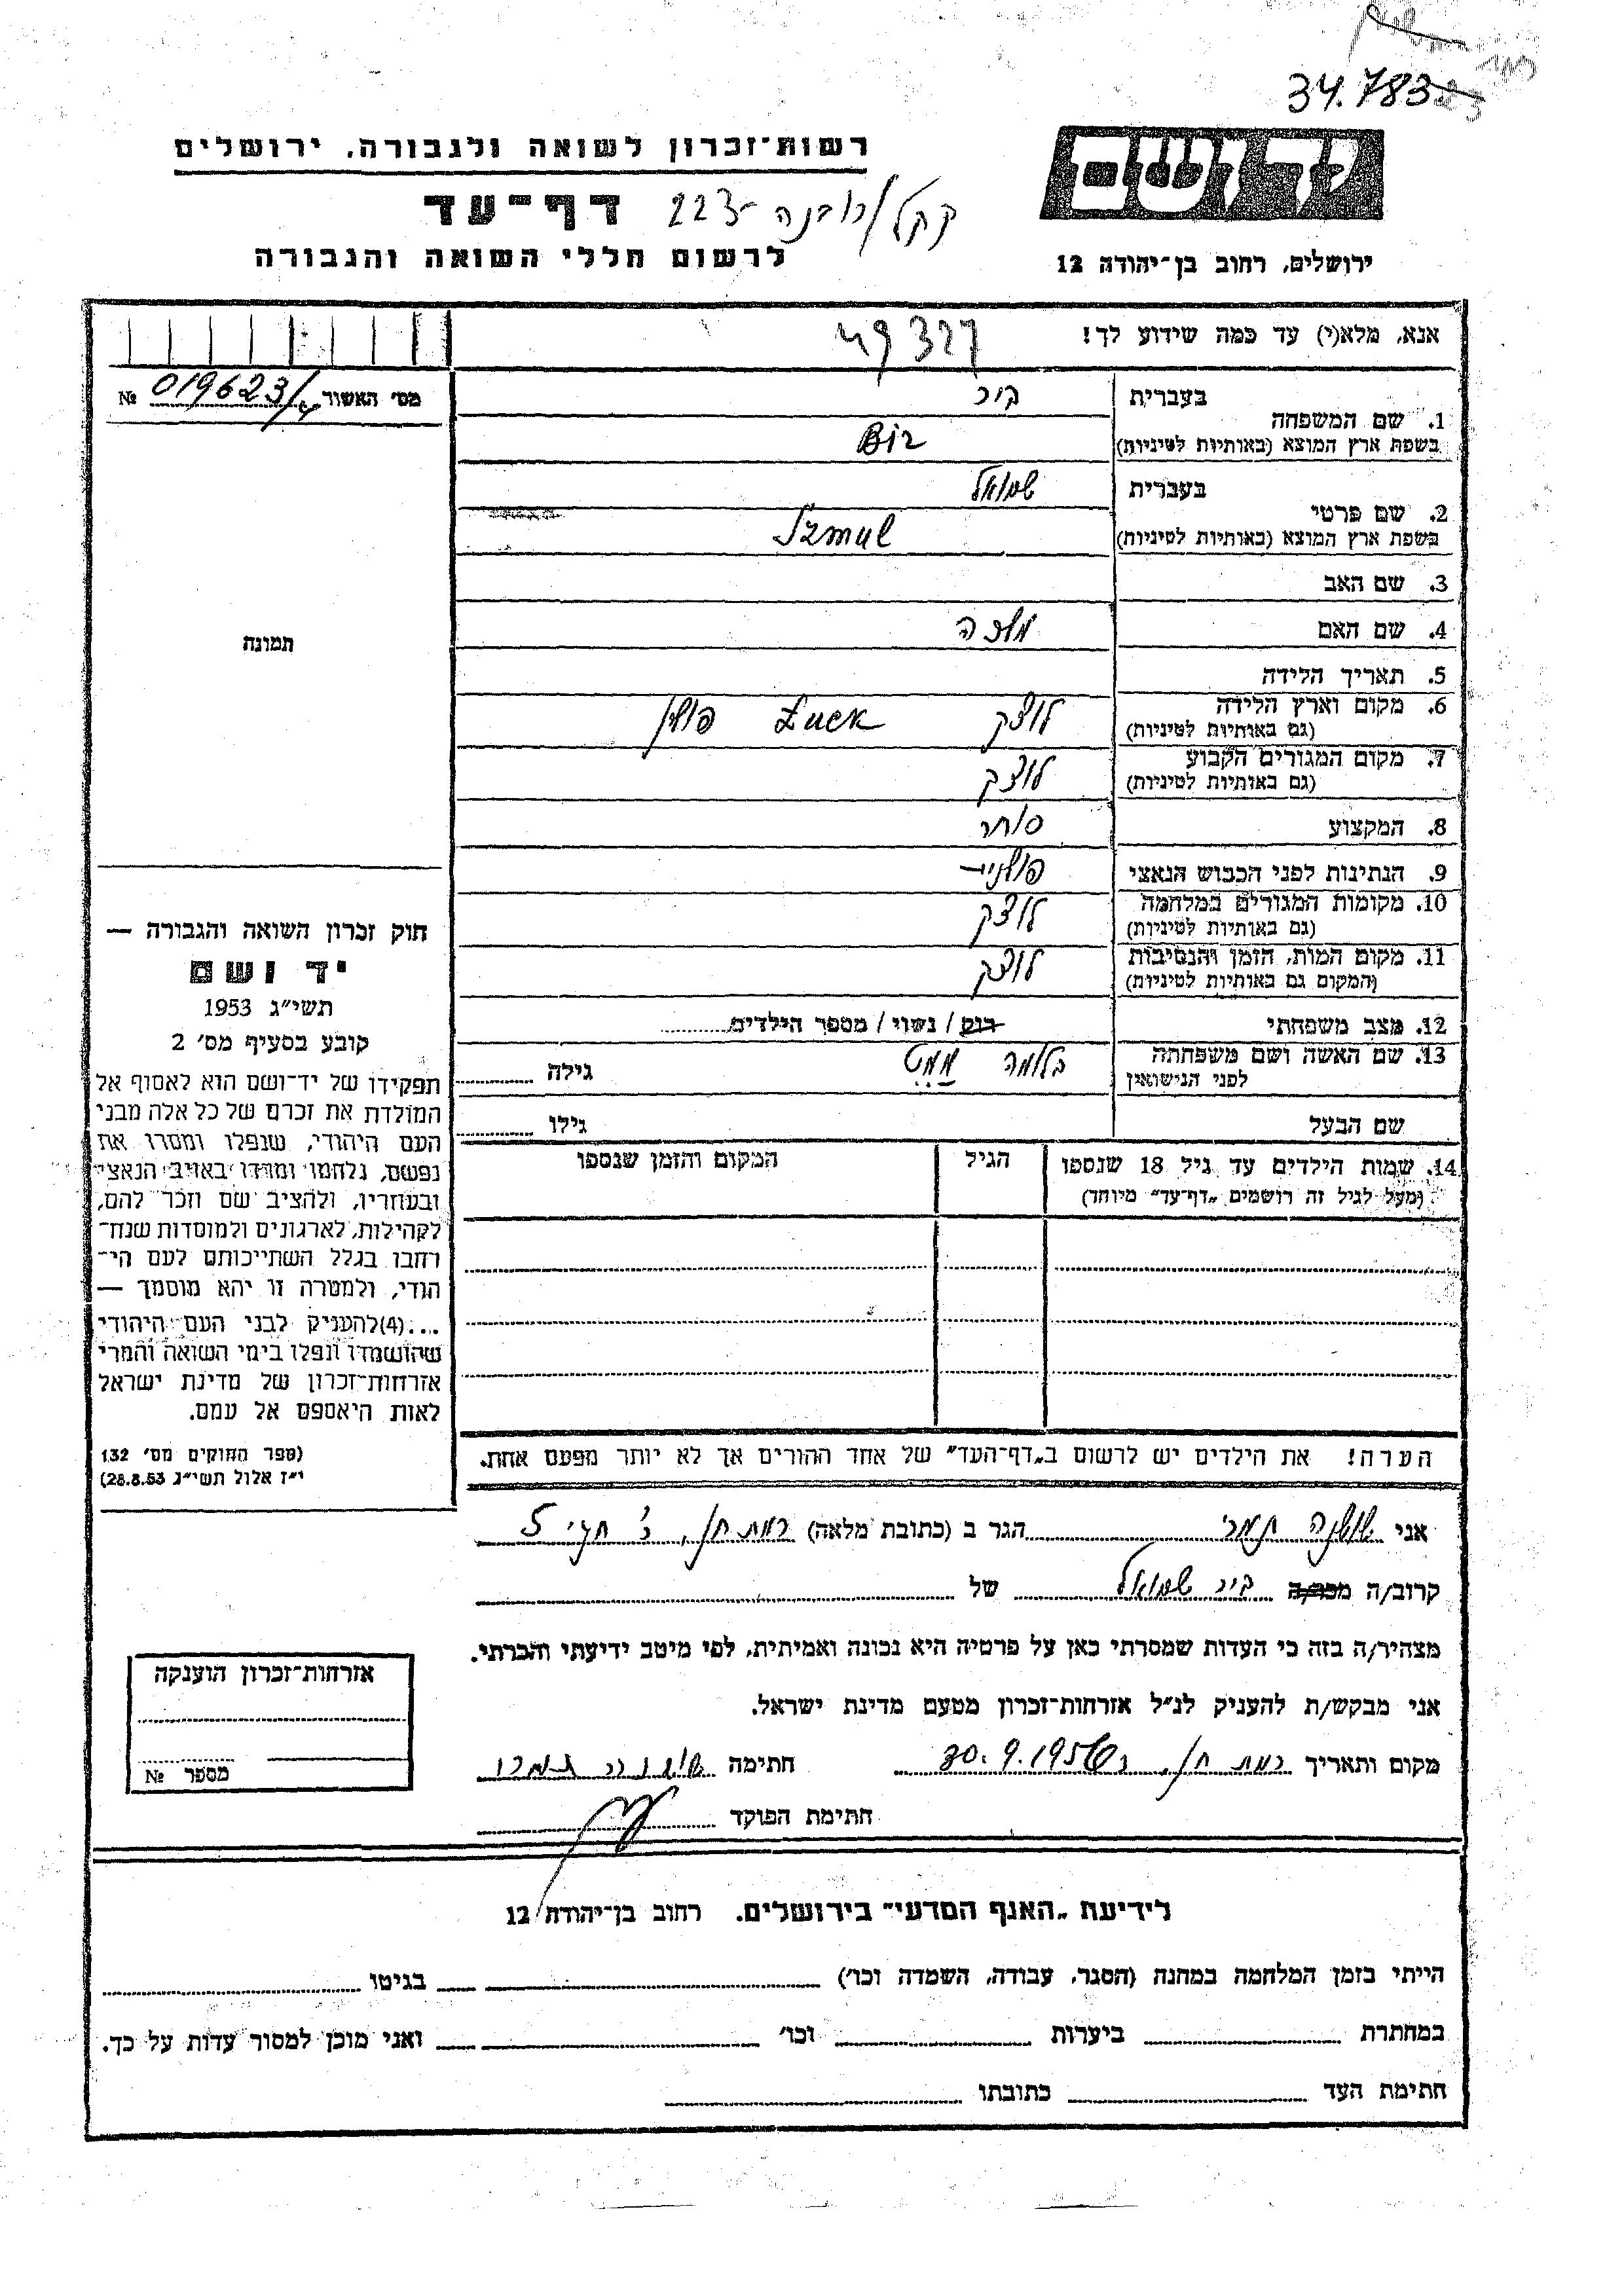 34.783
רשות־זכרון לשואה ולגבורה, ירושלים
דף־עד
223
לרשום חללי השואה והגבורה
יד ושם
ירושלים, רחוב בן־יהודה 12
אנא, מלא(י) עד כמה שידוע לך!
49327
מס׳ האשור № 019623/
1. שם המשפחה
בעברית ביר
בשפת ארץ המוצא (באותיות לטיניות) Bir
2. שם פרטי
בעברית שמואל
בשפת ארץ המוצא (באותיות לטיניות) Szmul
3. שם האב
4. שם האם
5. תאריך הלידה
6. מקום וארץ הלידה לוצק Łuck פולין
(גם באותיות לטיניות)
7. מקום המגורים הקבוע לוצק
(גם באותיות לטיניות)
8. המקצוע סוחר
9. הנתינות לפני הכבוש הנאצי פולנית
10. מקומות המגורים במלחמה לוצק
(גם באותיות לטיניות)
11. מקום המות, הזמן והנסיבות לוצק
(והמקום גם באותיות לטיניות)
12. מצב משפחתי רוק / נשוי / מספר הילדים
13. שם האשה ושם משפחתה
לפני הנישואין גילה
שם הבעל גילו
14. שמות הילדים עד גיל 18 שנספו הגיל המקום והזמן שנספו
(מעל לגיל זה רושמים „דף־עד״ מיוחד)
תמונה
חוק זכרון השואה והגבורה —
יד ושם
תשי״ג 1953
קובע בסעיף מס׳ 2
תפקידו של יד־ושם הוא לאסוף אל
המולדת את זכרם של כל אלה מבני
העם היהודי, שנפלו ומסרו את
נפשם, נלחמו ומרדו באויב הנאצי
ובעוזריו, ולהציב שם וזכר להם,
לקהילות, לארגונים ולמוסדות שנח־
רחבו בגלל השתייכותם לעם הי־
הודי, ולמטרה זו יהא מוסמך —
...(4)להעניק לבני העם היהודי
שהושמדו ונפלו בימי השואה והמרי
אזרחות־זכרון של מדינת ישראל
לאות היאספם אל עמם.
(ספר החוקים מס׳ 132
י״ז אלול תשי״ג 28.8.53)
הערה! את הילדים יש לרשום ב„דף־העד״ של אחד ההורים אך לא יותר מפעם אחת.
אני שושנה תמרי הגר ב (כתובת מלאה) רמת חן,
קרוב/ה מכר/ה ביר שמואל של
מצהיר/ה בזה כי העדות שמסרתי כאן על פרטיה היא נכונה ואמיתית, לפי מיטב ידיעתי והכרתי.
אני מבקש/ת להעניק לנ״ל אזרחות־זכרון מטעם מדינת ישראל.
מקום ותאריך רמת חן, 30.9.1956 חתימה שושנה תמרי
חתימת הפוקד
אזרחות־זכרון הוענקה
מספר №
לידיעת „האגף המדעי״ בירושלים. רחוב בן־יהודה 12
הייתי בזמן המלחמה במחנה (הסגר, עבודה, השמדה וכו׳) בגיטו
במחתרת ביערות וכו׳ ואני מוכן למסור עדות על כך.
חתימת העד כתובתו